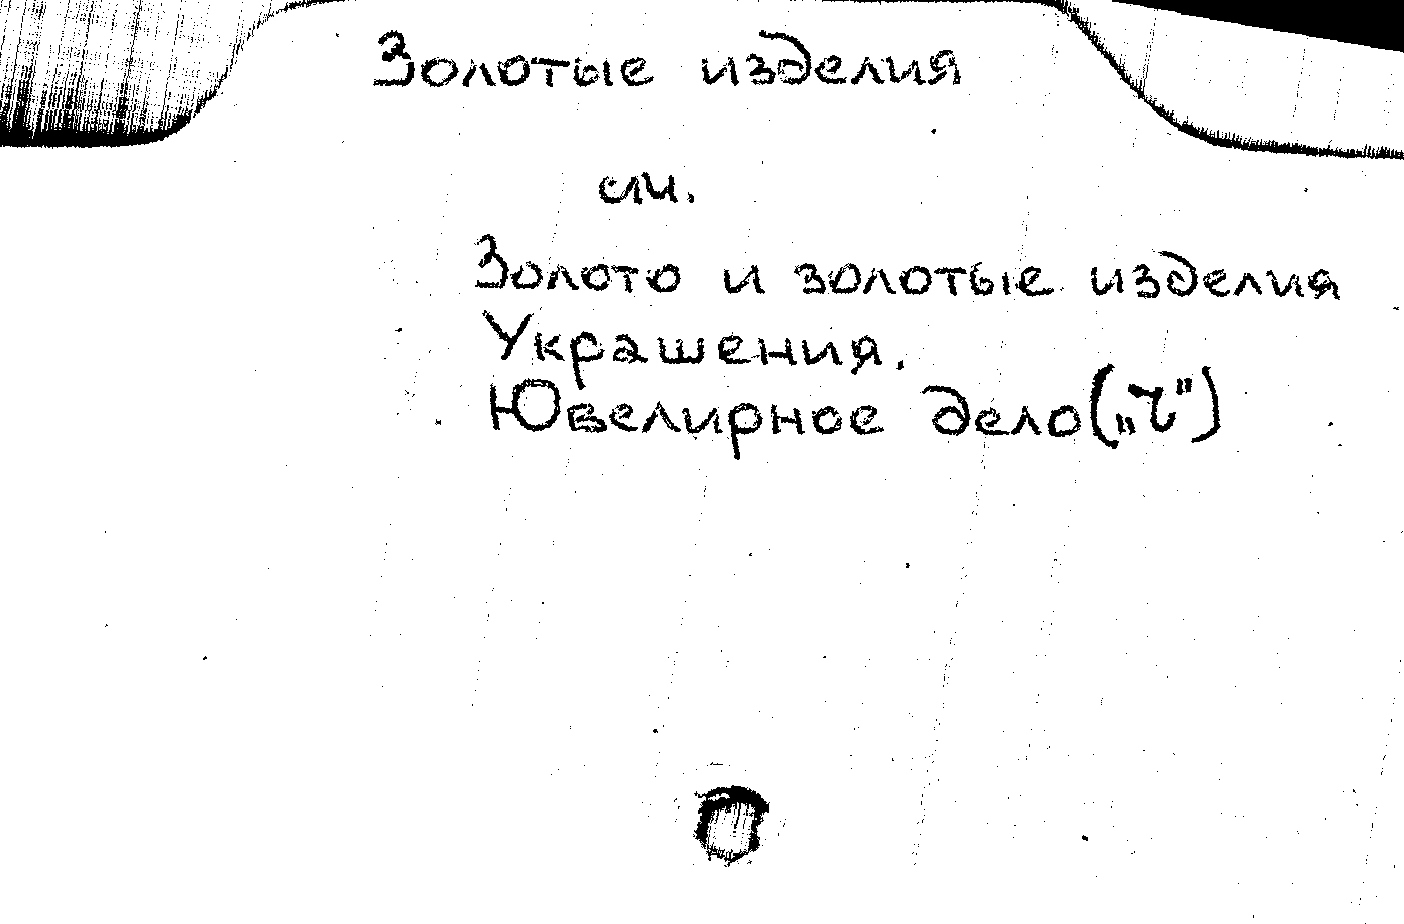 Золотые изделия
см.
Золото и золотые изделия
Украшения.
Ювелирное дело („Ч")